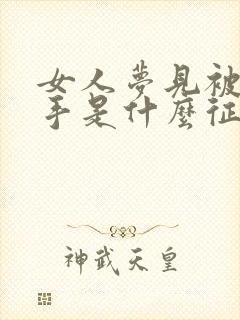 女人夢見被
手是什麼征
神武天皇